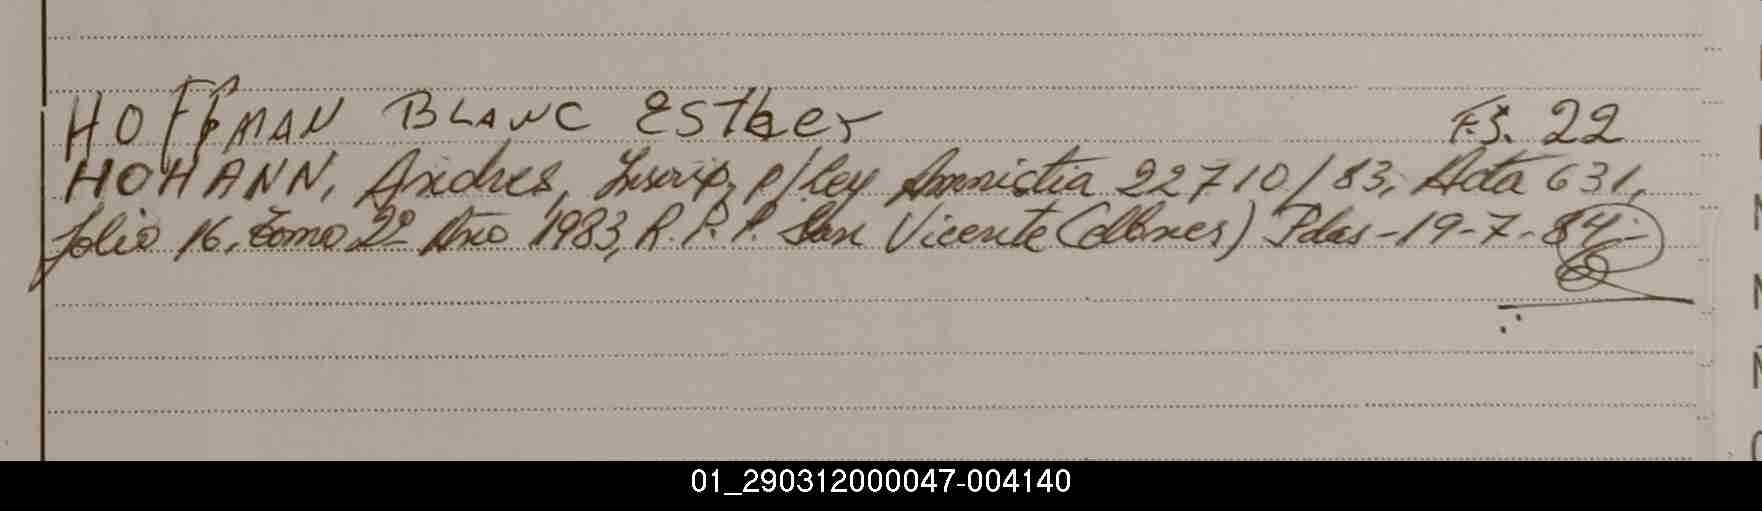 HOFFMAN BLANC Esther FS. 22
HOHANN, Andres, Inscrip, p/Ley Amnistia 22710/83, Acta 631,
folio 16, tomo 2º Año 1983, R. P. P. San Vicente (Mnes) Pdas-19-7-84-
01_290312000047-004140